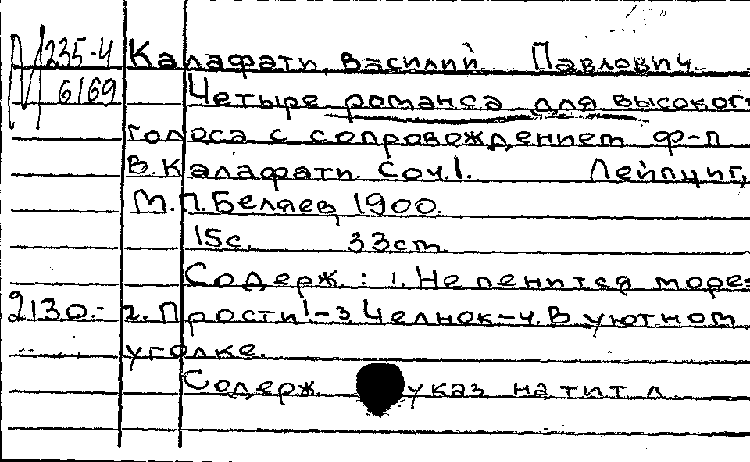 235-4 Калафати, Василий Павлович.
6169 Четыре романса для высоког
голоса с сопровождением ф-п
В. Калафати. Соч. 1. Лейпциг,
М. П. Беляев, 1900.
15 с. 33 cm.
Содерж.: 1. Не пенится море-
2130.- 2. Прости!-3. Челнок-4. В уютном
уголке.
Содерж. указ на тит л.